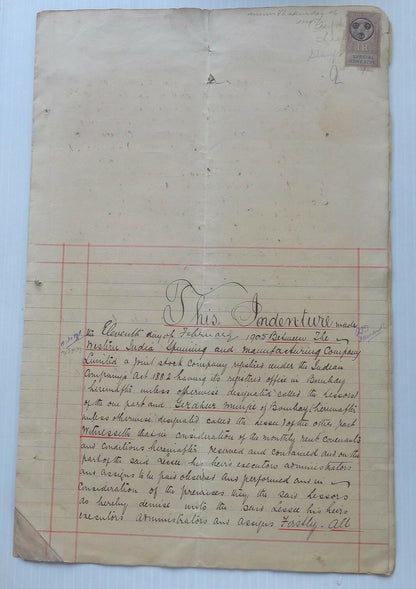 1 R
SPECIAL
ADHESIVE
This Indenture made
the Eleventh day of February 1905 Between The
Western India Spinning and Manufacturing Company
Limited a joint stock company registered under the Indian
Companies Act 1882 having its registered office in Bombay
hereinafter unless otherwise designated called the lessors
of the one part and of Bombay hereinafter
unless otherwise designated called the lessee of the other part
Witnesseth that in consideration of the monthly rent covenants
and conditions hereinafter reserved and contained and on the
part of the said lessee his heirs executors administrators
and assigns to be paid observed and performed and in
consideration of the premises they the said lessors
do hereby demise unto the said lessee his heirs
executors administrators and assigns Firstly - All